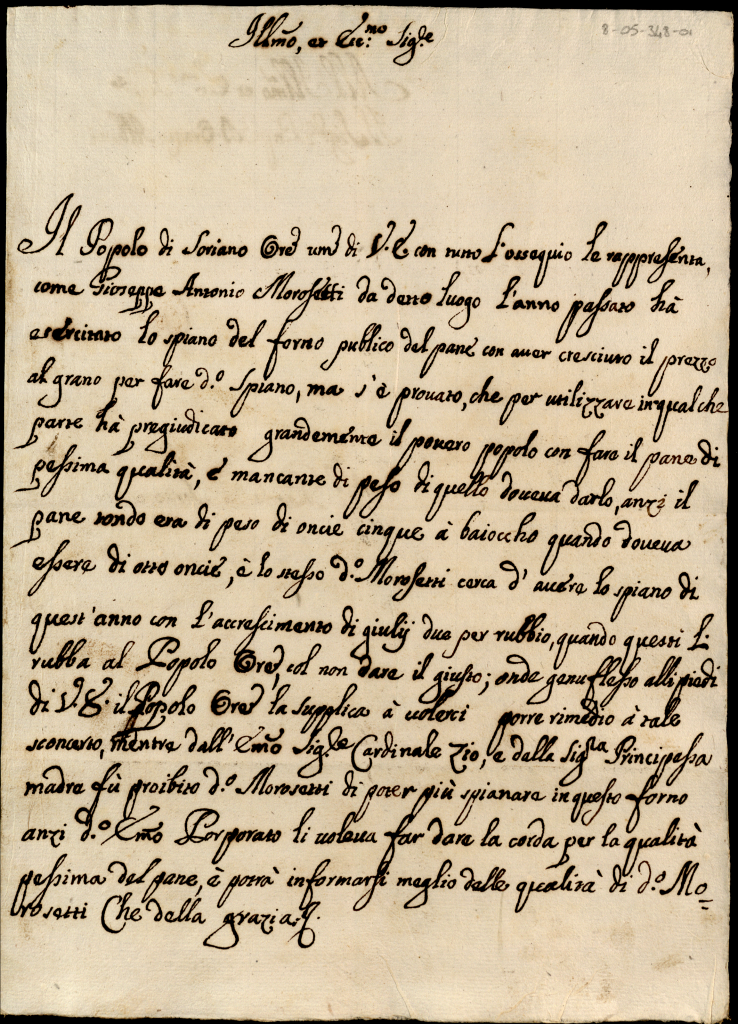 8-05-348-01
Illmo, et Ecc:mo Sig.re
Il Popolo di Soriano Ore umo di V. E con tutto l'ossequio le rappresenta,
come Gioseppe Antonio Morosetti da detto luogo l'anno passato hà
esercitato lo spiano del forno publico del pane con auer cresciuto il prezzo
al grano per fare d.o Spiano, ma s'è prouato, che per utilizzare in qualche
parte hà pregiudicato grandemente il pouero popolo con fare il pane di
pessima qualità, è mancante di peso di quello doueua darlo, anzi il
pane tondo era di peso di oncie cinque à baioccho quando doueua
essere di otto oncie, è lo stesso d.o Morosetti cerca d'auere lo spiano di
quest'anno con l'accrescimento di giulij due per rubbio, quando questi li
rubba al Popolo Ore, col non dare il giusto; onde genuflesso alli piedi
di V. E. il Popolo Ore la supplica à uolerci porre rimedio à tale
sconcerto, mentre dall'Emo Sig.re Cardinale Zio, e della Sig.ra Principessa
madre fù proibito d.o Morosetti di poter più spianare in questo forno
anzi d.o Emo Porporato li uoleua far dare la corda per la qualità
pessima del pane, è potrà informarsi meglio delle qualità di d.o Mo=
rosetti Che della grazia